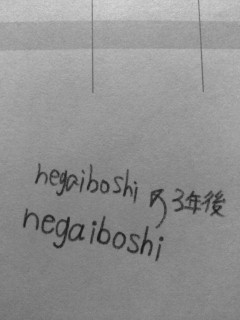 negaiboshi
3年後
negaiboshi